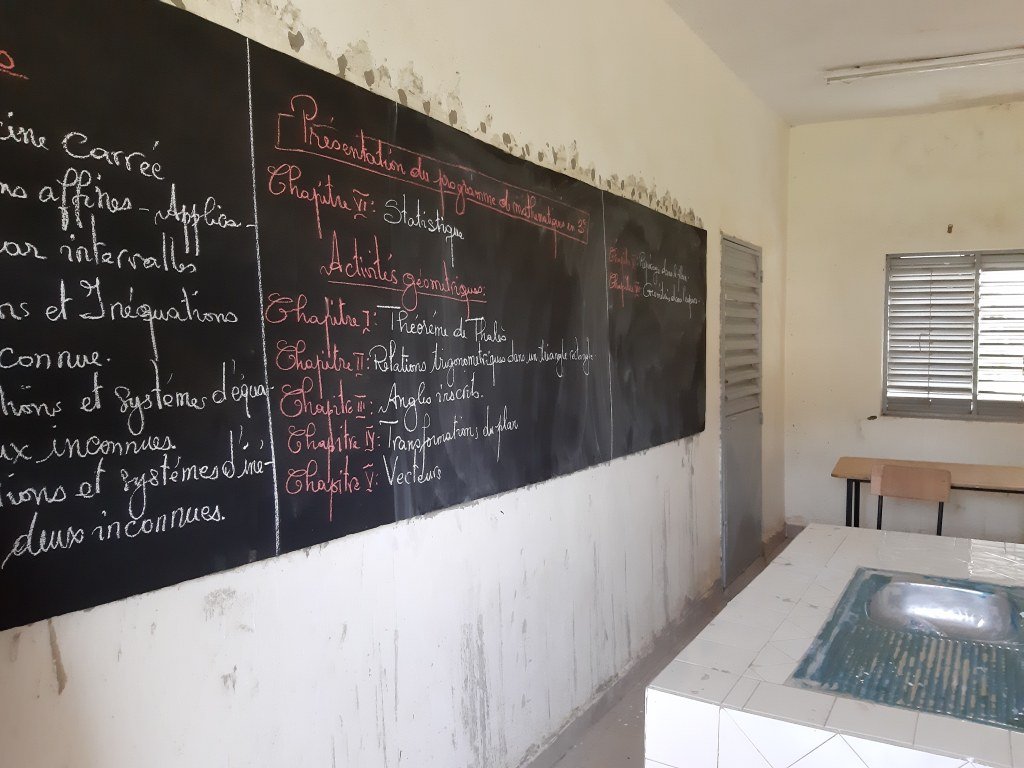 cine Carrée
ns affines - Applica-
par intervalles
ns et Inéquations
connue.
tions et systémes d'équa-
ux inconnues.
tions et systémes d'iné-
deux inconnues.
Présentation du programme de mathématiques en 3e
Chapitre VI: Statistique
Activités géometriques:
Chapitre I: Theoréme de Thalès
Chapitre II: Relations trigonometriques dans un triangle rectangle.
Chapitre III: Angles inscrits.
Chapitre IV: Transformations du plan
Chapitre V: Vecteurs
Chapitre
Chapitre